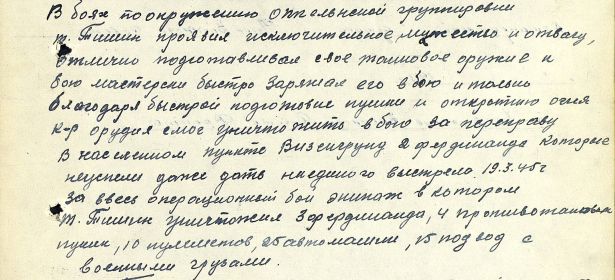 В боях по окружению Оппельнской группировки
т. Тишин проявил исключительное мужество и отвагу,
отлично подготавливал свое танковое оружие к
бою мастерски быстро заряжал его в бою и только
благодаря быстрой подготовке пушки и открытию огня
к-р орудия смог уничтожить в бою за переправу
в населенном пункте Визенгрунд 2 фердинанда которые
неуспели даже дать ниединого выстрела 19.3.45г
За ввесь операционный бой экипаж в котором
т. Тишин уничтожил 3 фердинанда, 4 противотанковых
пушек, 10 пулеметов, 25 автомашин, 15 подвод с
военными грузами.